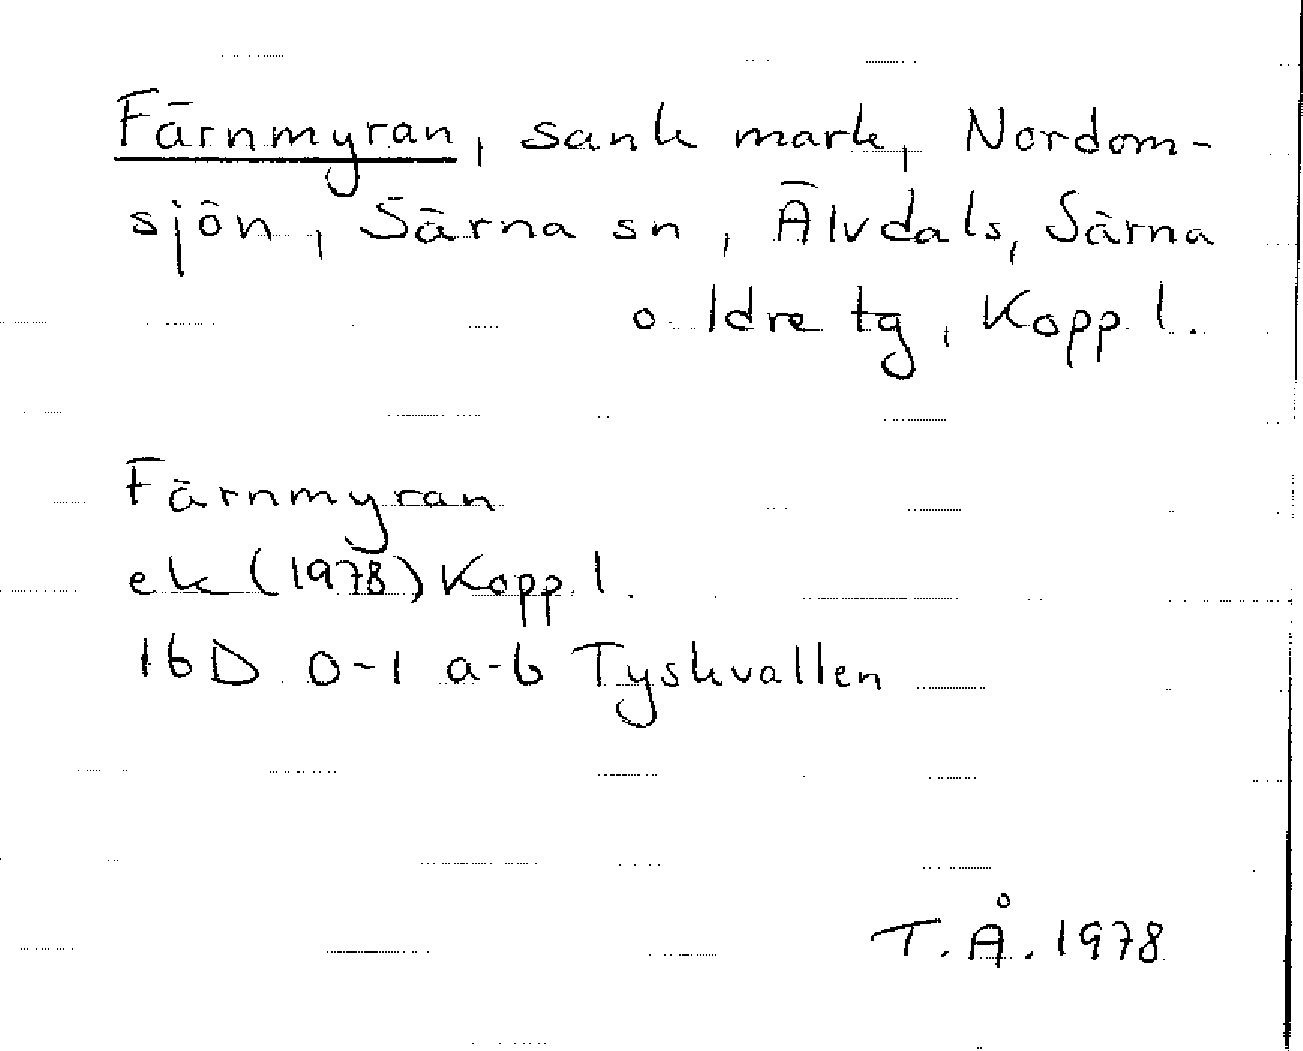 Färnmyran, sank mark, Nordom-
sjön, Särna sn, Älvdals, Särna
o. Idre tg, Kopp. l.
Färnmyran
ek (1978) Kopp. l.
16D 0-1 a-b Tyskvallen
T. Å. 1978